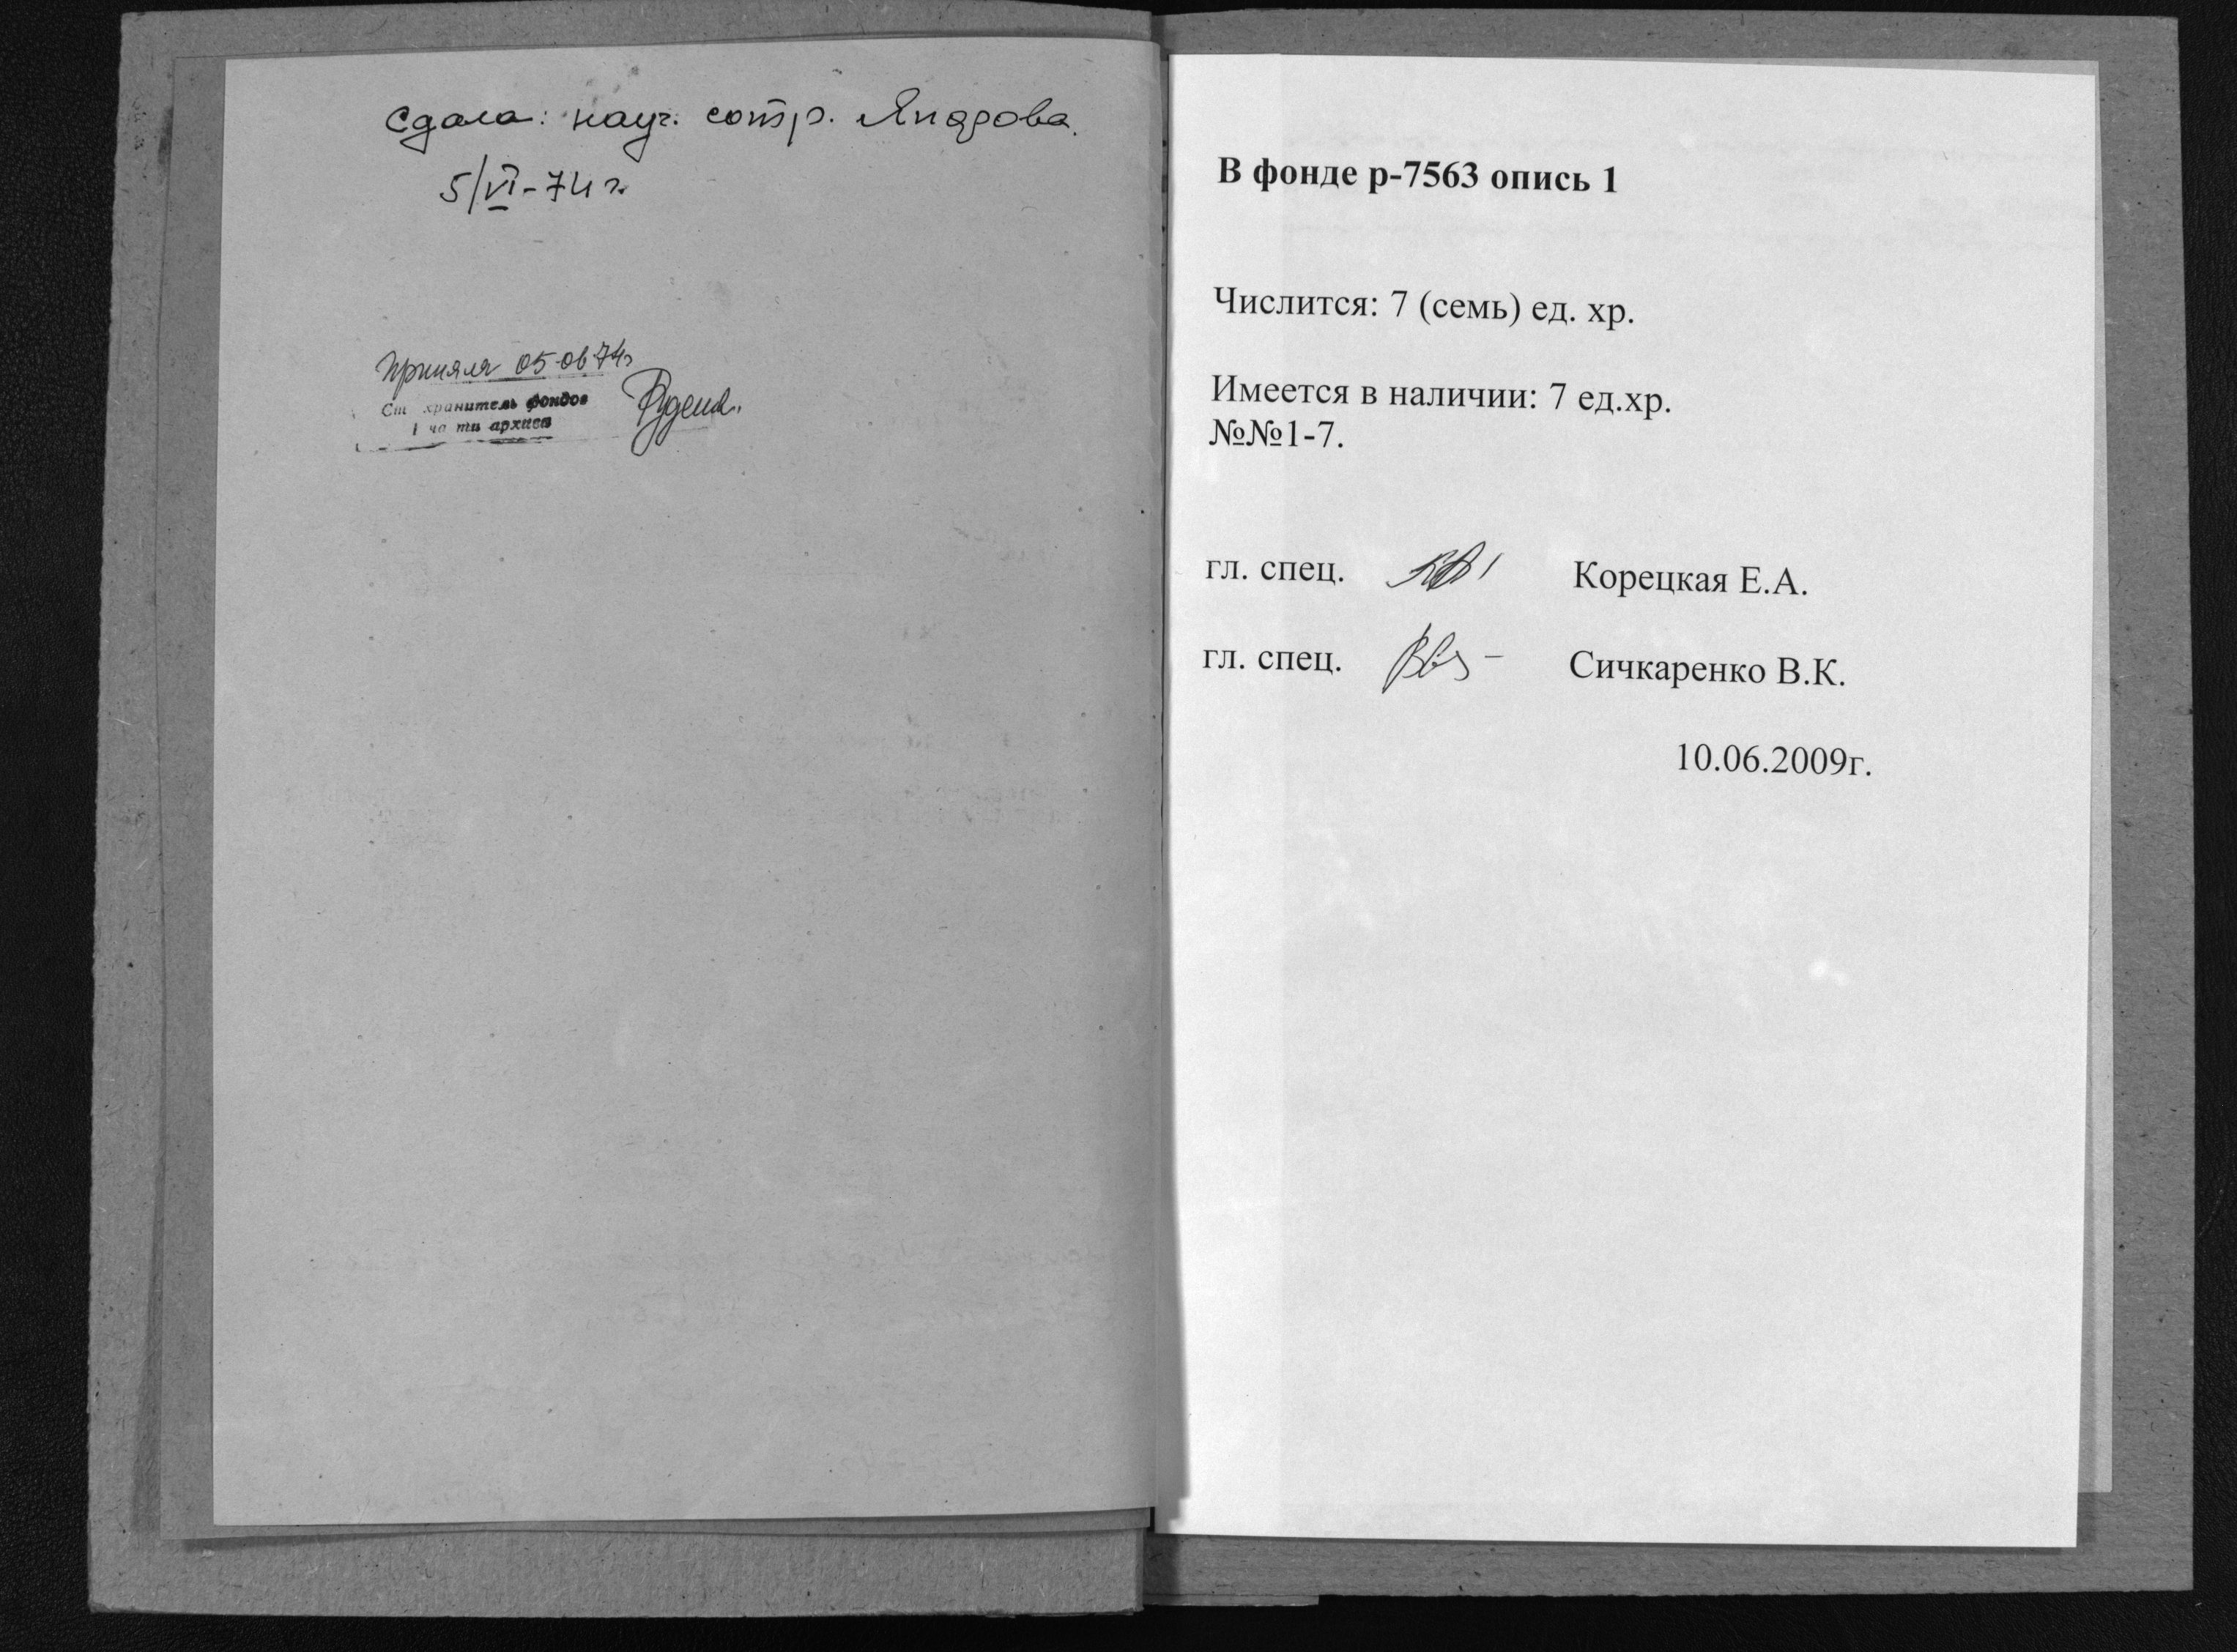 Сдала: науч. сотр.
5/VI-74 г.
Приняла 05-06-74г
Ст хранитель фондов
архива
В фонде р-7563 опись 1
Числится: 7 (семь) ед. хр.
Имеется в наличии: 7 ед.хр.
№№1-7.
гл. спец. Корецкая Е.А.
гл. спец. Сичкаренко В.К.
10.06.2009г.